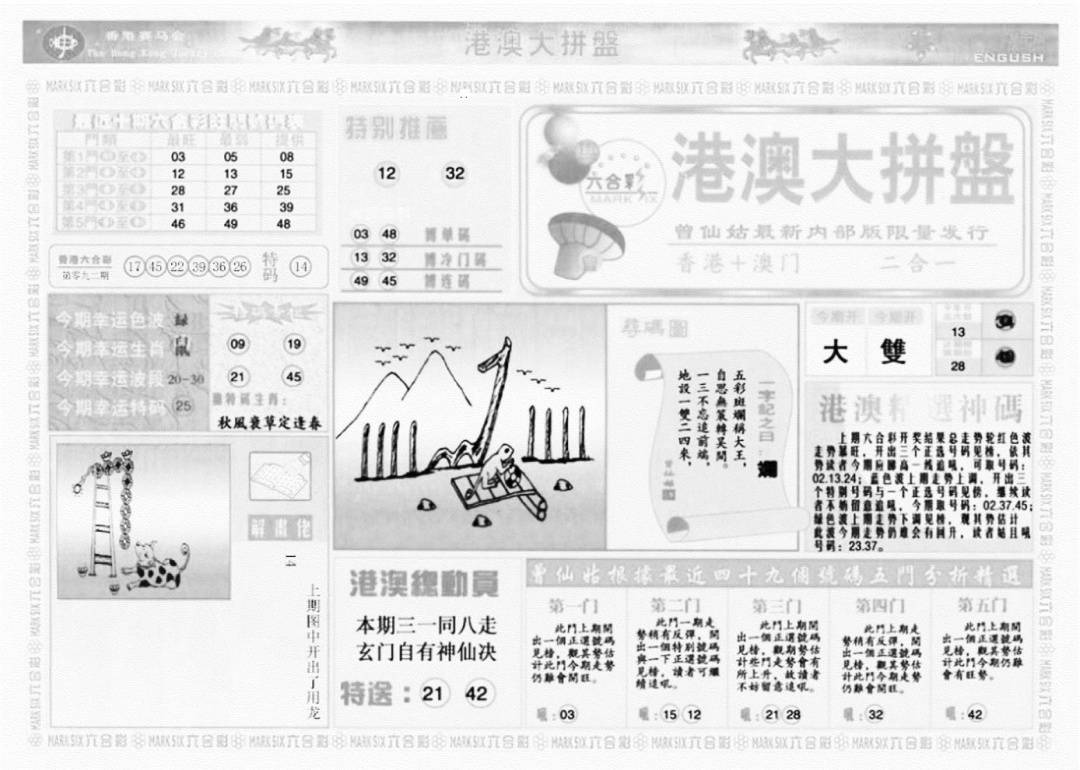 香港赛马会
The Hong Kong Jockey
港澳大拼盤
ENGUSH
MARK SIX 六合彩
門類 最旺 最弱 提供
第1門 至 03 05 08
第2門 至 12 13 15
第3門 至 28 27 25
第4門 至 31 36 39
第5門 至 46 49 48
香港六合彩
第零九二期
17 45 22 39 36 26
特码 14
特别推薦
12 32
03 48 博单码
13 32 博冷门码
49 45 博连码
六合彩
MARK SIX
港澳大拼盤
曾仙姑最新内部版限量发行
香港+澳门 二合一
今期幸运色波 绿
今期幸运生肖 鼠
今期幸运波段 20-30
今期幸运特码 25
09 19
21 45
特码生肖:
秋風衰草定逢春
尋碼圖
一字記之曰:斕
五彩斑斕稱大王,
自思無策轉吴閩。
一三不忘追前端,
地設一雙二四來,
今期开 今期开
大 雙
13
28
港澳精選神碼
上期六合彩开奖结果总走势轮红色波
走势暴旺,开出三个正选号码见榜,依其
势读者今期应睇高一线追吼,可取号码:
02.13.24;蓝色波上期走势上调,开出三
个特别号码与一个正选号码见傍,继续读
者不妨留意追吼,今期取号码:02.37.45;
绿色波上期走势下调见榜,观其势估计
此波今期走势仍难会有回升,读者姑且吼
号码:23.37。
解畫佬
上期图中开出了用龙
港澳總動員
本期三一同八走
玄门自有神仙决
特送:21 42
曾仙姑根據最近四十九個號碼五門分析精選
第一门
此門上期開
出一個正選號碼
見榜,觀其勢估
計此門今期走勢
仍難會開旺。
吼:03
第二门
此門一期走
勢稍有反彈,開
出一個特別號碼
與一下正選號碼
見榜,讀者可繼
續追吼。
吼:15 12
第三门
此門上期開
出一個正選號碼
見榜,觀期勢估
計些門走勢會有
所上升,故讀者
不妨留意追吼。
吼:21 28
第四门
此門上期走
勢稍有反彈,開
出一個正選號碼
見榜,觀其勢估
計此門今期走勢
仍難會開旺。
吼:32
第五门
此門上期開
出一個正選號碼
見榜,觀其勢估
計此門今期仍難
會有旺勢。
吼:42